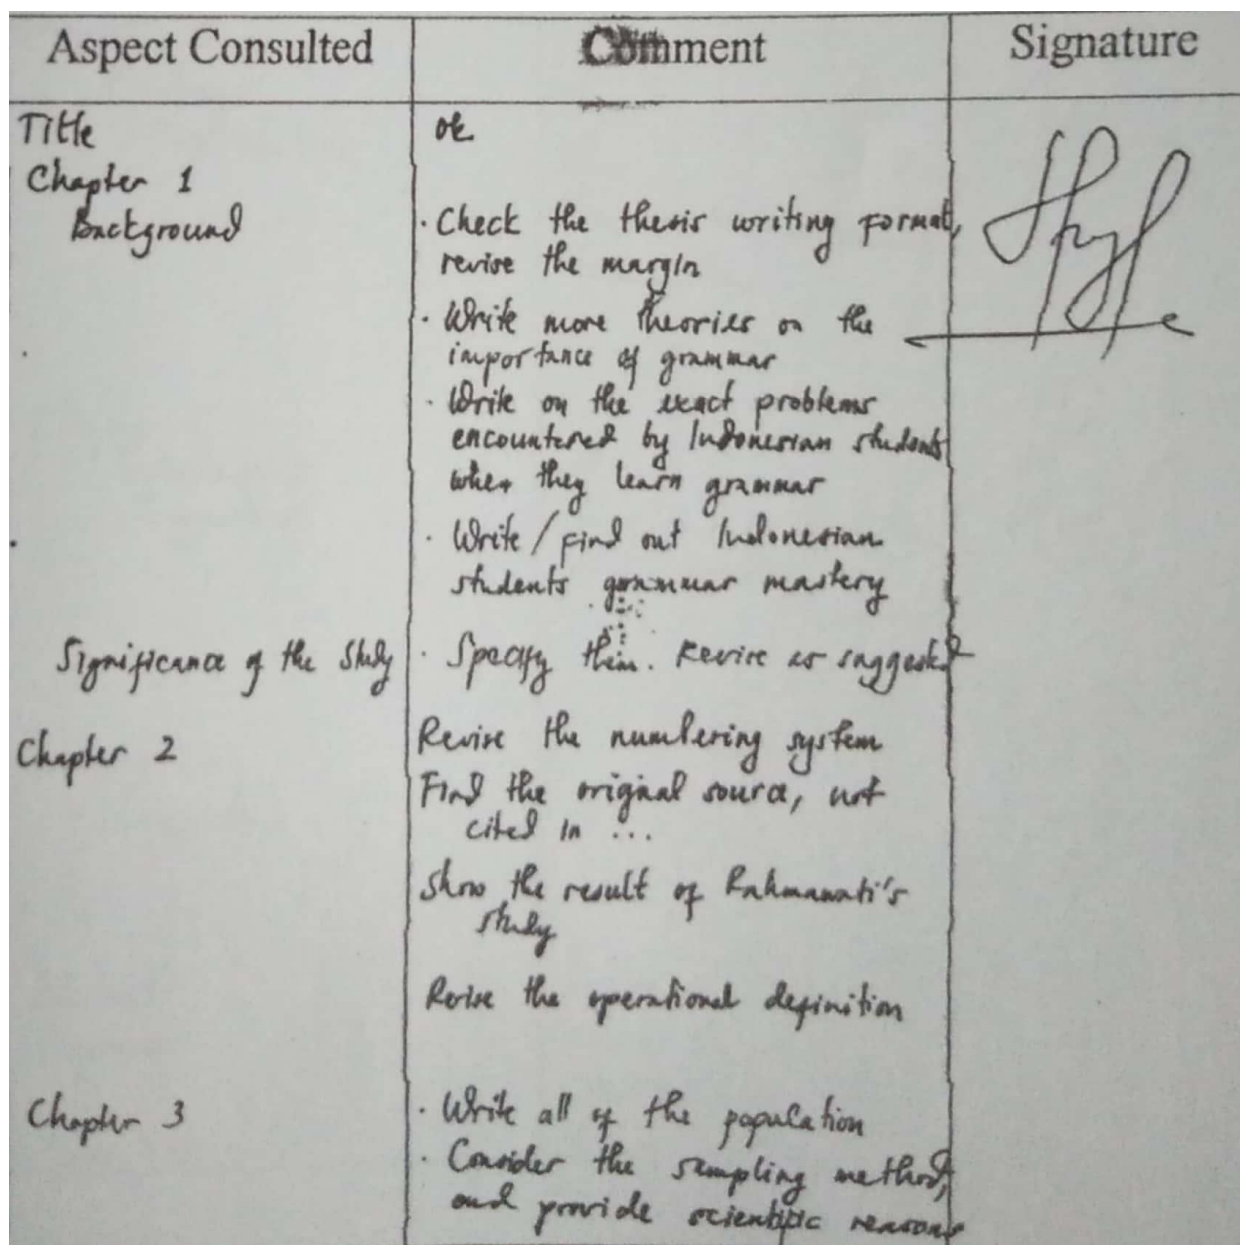 Aspect Consulted Comment Signature
Title ok
Chapter 1
Background · Check the thesis writing format,
revise the margin
· Write more theories on the
importance of grammar
· Write on the exact problems
encountered by Indonesian students
when they learn grammar
· Write / find out Indonesian
students grammar mastery
Significance of the Study · Specify them. Revise as suggested
Chapter 2 Revise the numbering system
Find the original source, not
cited in ...
Show the result of Rahmawati's
study
Revise the operational definition
Chapter 3 · Write all of the population
· Consider the sampling method,
and provide scientific reasons